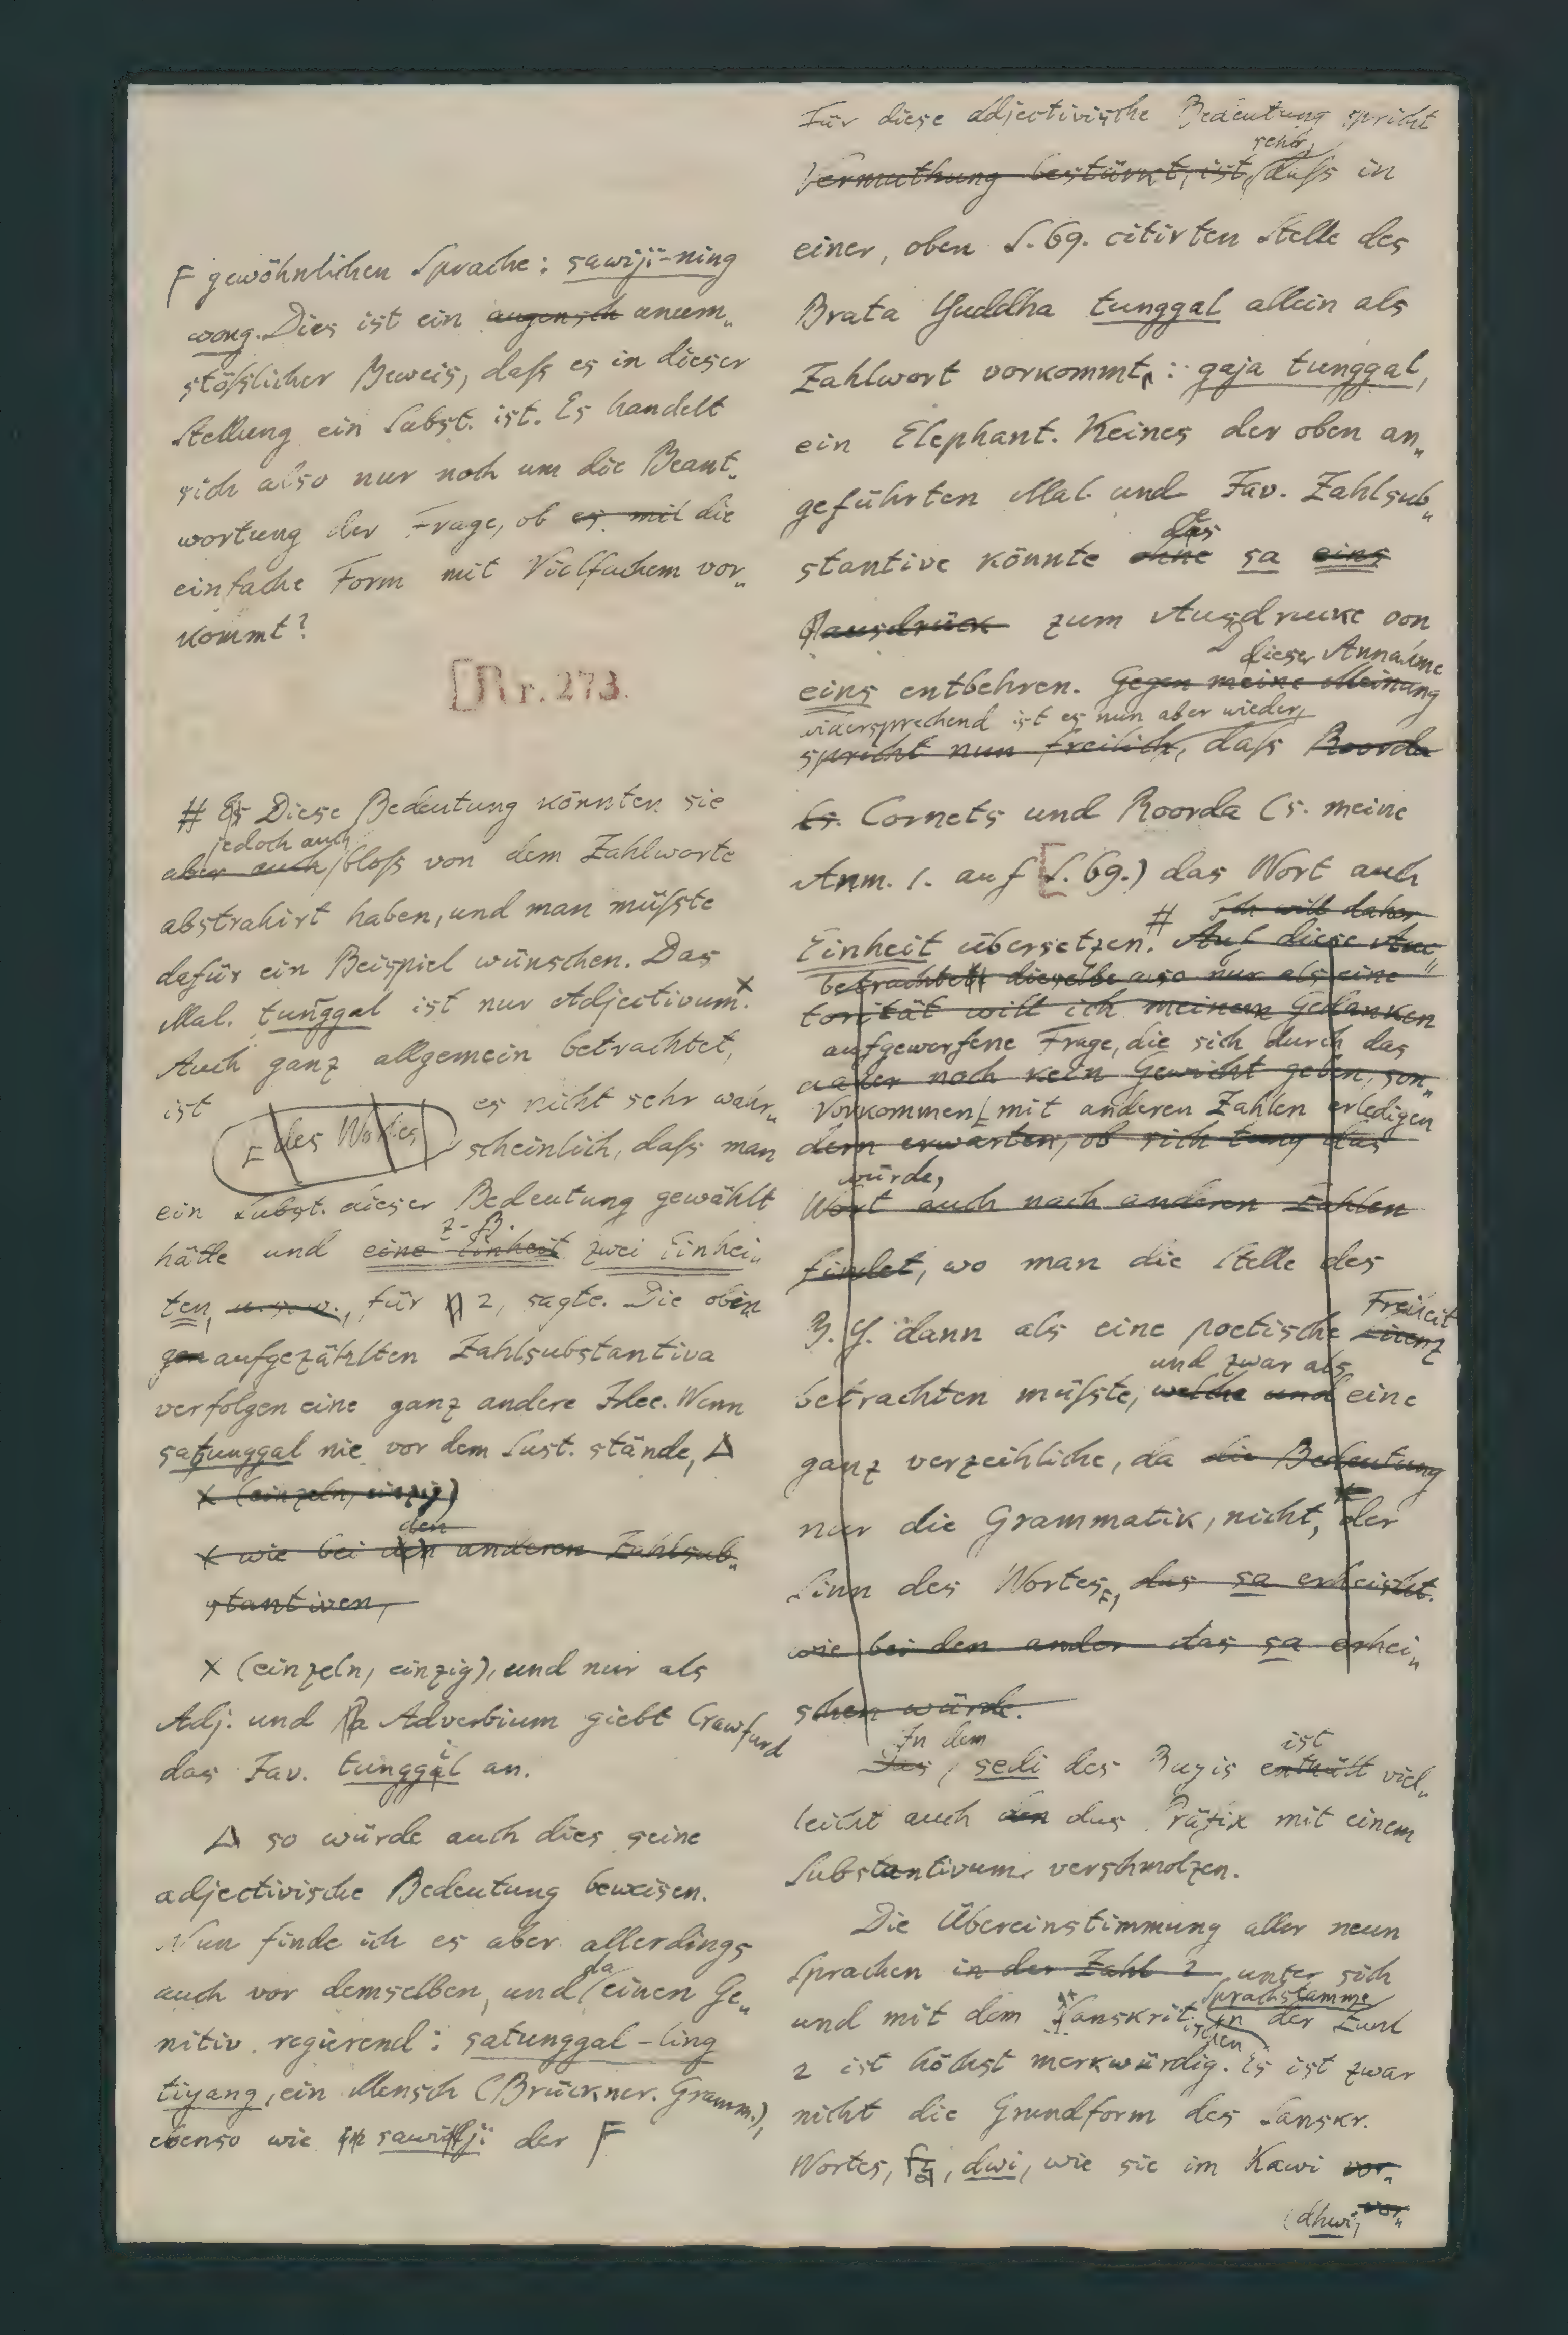 F gewöhnlichen Sprache: sawiji-ning
wong. Dies ist ein augensch unum„
stößlicher Beweis, daß es in dieser
Stellung ein Subst. ist. Es handelt
sich also nur noch um die Beant„
wortung der Frage, ob es mit die
einfache Form mit Vielfachem vor„
kommt?
[Nr. 273.
# Es Diese Bedeutung könnten sie
jedoch auch
aber auch bloß von dem Zahlworte
abstrahirt haben, und man müßte
dafür ein Beispiel wünschen. Das
Mal. tunggal ist nur Adjectivum.x
Auch ganz allgemein betrachtet,
ist des Wortes es nicht sehr wahr„
scheinlich, daß man
ein Subst. dieser Bedeutung gewählt
z. B.
hätte und eine Einheit zwei Einhei„
ten, u. s. w., für 2, sagte. Die oben
gen aufgezählten Zahlsubstantiva
verfolgen eine ganz andere Idee. Wenn
satunggal nie vor dem Sust. stände, Δ
x (einzeln, einzig)
den
x wie bei den anderen Zahlsub„
stantiven,
x (einzeln, einzig), und nur als
Adj. und Adverbium giebt Crawfurd
das Jav. tunggil an.
Δ so würde auch dies seine
adjectivische Bedeutung beweisen.
Nun finde ich es aber allerdings
da
auch vor demselben, und einen Ge„
nitiv regierend: satunggal-ling
tiyang, ein Mensch (Brückner. Gramm.),
ebenso wie sawiji der F
Für diese adjectivische Bedeutung spricht
sehr,
Vermuthung bestärkt, ist, daß in
einer, oben S. 69. citirten Stelle des
Brata Yuddha tunggal allein als
Zahlwort vorkommt: gaja tunggal,
ein Elephant. Keines der oben an„
geführten Mal. und Jav. Zahlsub„
des
stantive könnte ohne sa eins
ausdrück zum Ausdrucke von
dieser Annahme
eins entbehren. Gegen meine Meinung
widersprechend ist es nun aber wieder,
spricht nun freilich, daß Roorda
(s. Cornets und Roorda (s. meine
Anm. 1. auf [S. 69.) das Wort auch
# Ich will daher
Einheit übersetzen. Auf diese Au„
betrachtet dieselbe also nur als eine
torität will ich meinem Gedanken
aufgeworfene Frage, die sich durch das
aber noch kein Gewicht geben, son„
Vorkommen mit anderen Zahlen erledigen
dern erwarten, ob sich tung das
würde,
Wort auch nach anderen Zahlen
findet, wo man die Stelle des
Freiheit
B. Y. dann als eine poetische Licenz
und zwar als
betrachten müßte, welche und eine
ganz verzeihliche, da die Bedeutung
nur die Grammatik, nicht, der
Sinn des Wortes, das sa erheischt.
wie bei den ander das sa erhei„
schen würde.
In dem ist
Das, sedi des Bugis enthält viel„
leicht auch den das Präfix mit einem
Substantivum verschmolzen.
Die Übereinstimmung aller neun
Sprachen in der Zahl 2 unter sich
Sprachstamme
und mit dem Sanskritischen in der Zahl
2 ist höchst merkwürdig. Es ist zwar
nicht die Grundform des Sanskr.
Wortes, द्वि, dwi, wie sie im Kawi vor„
(dhwi, vor„